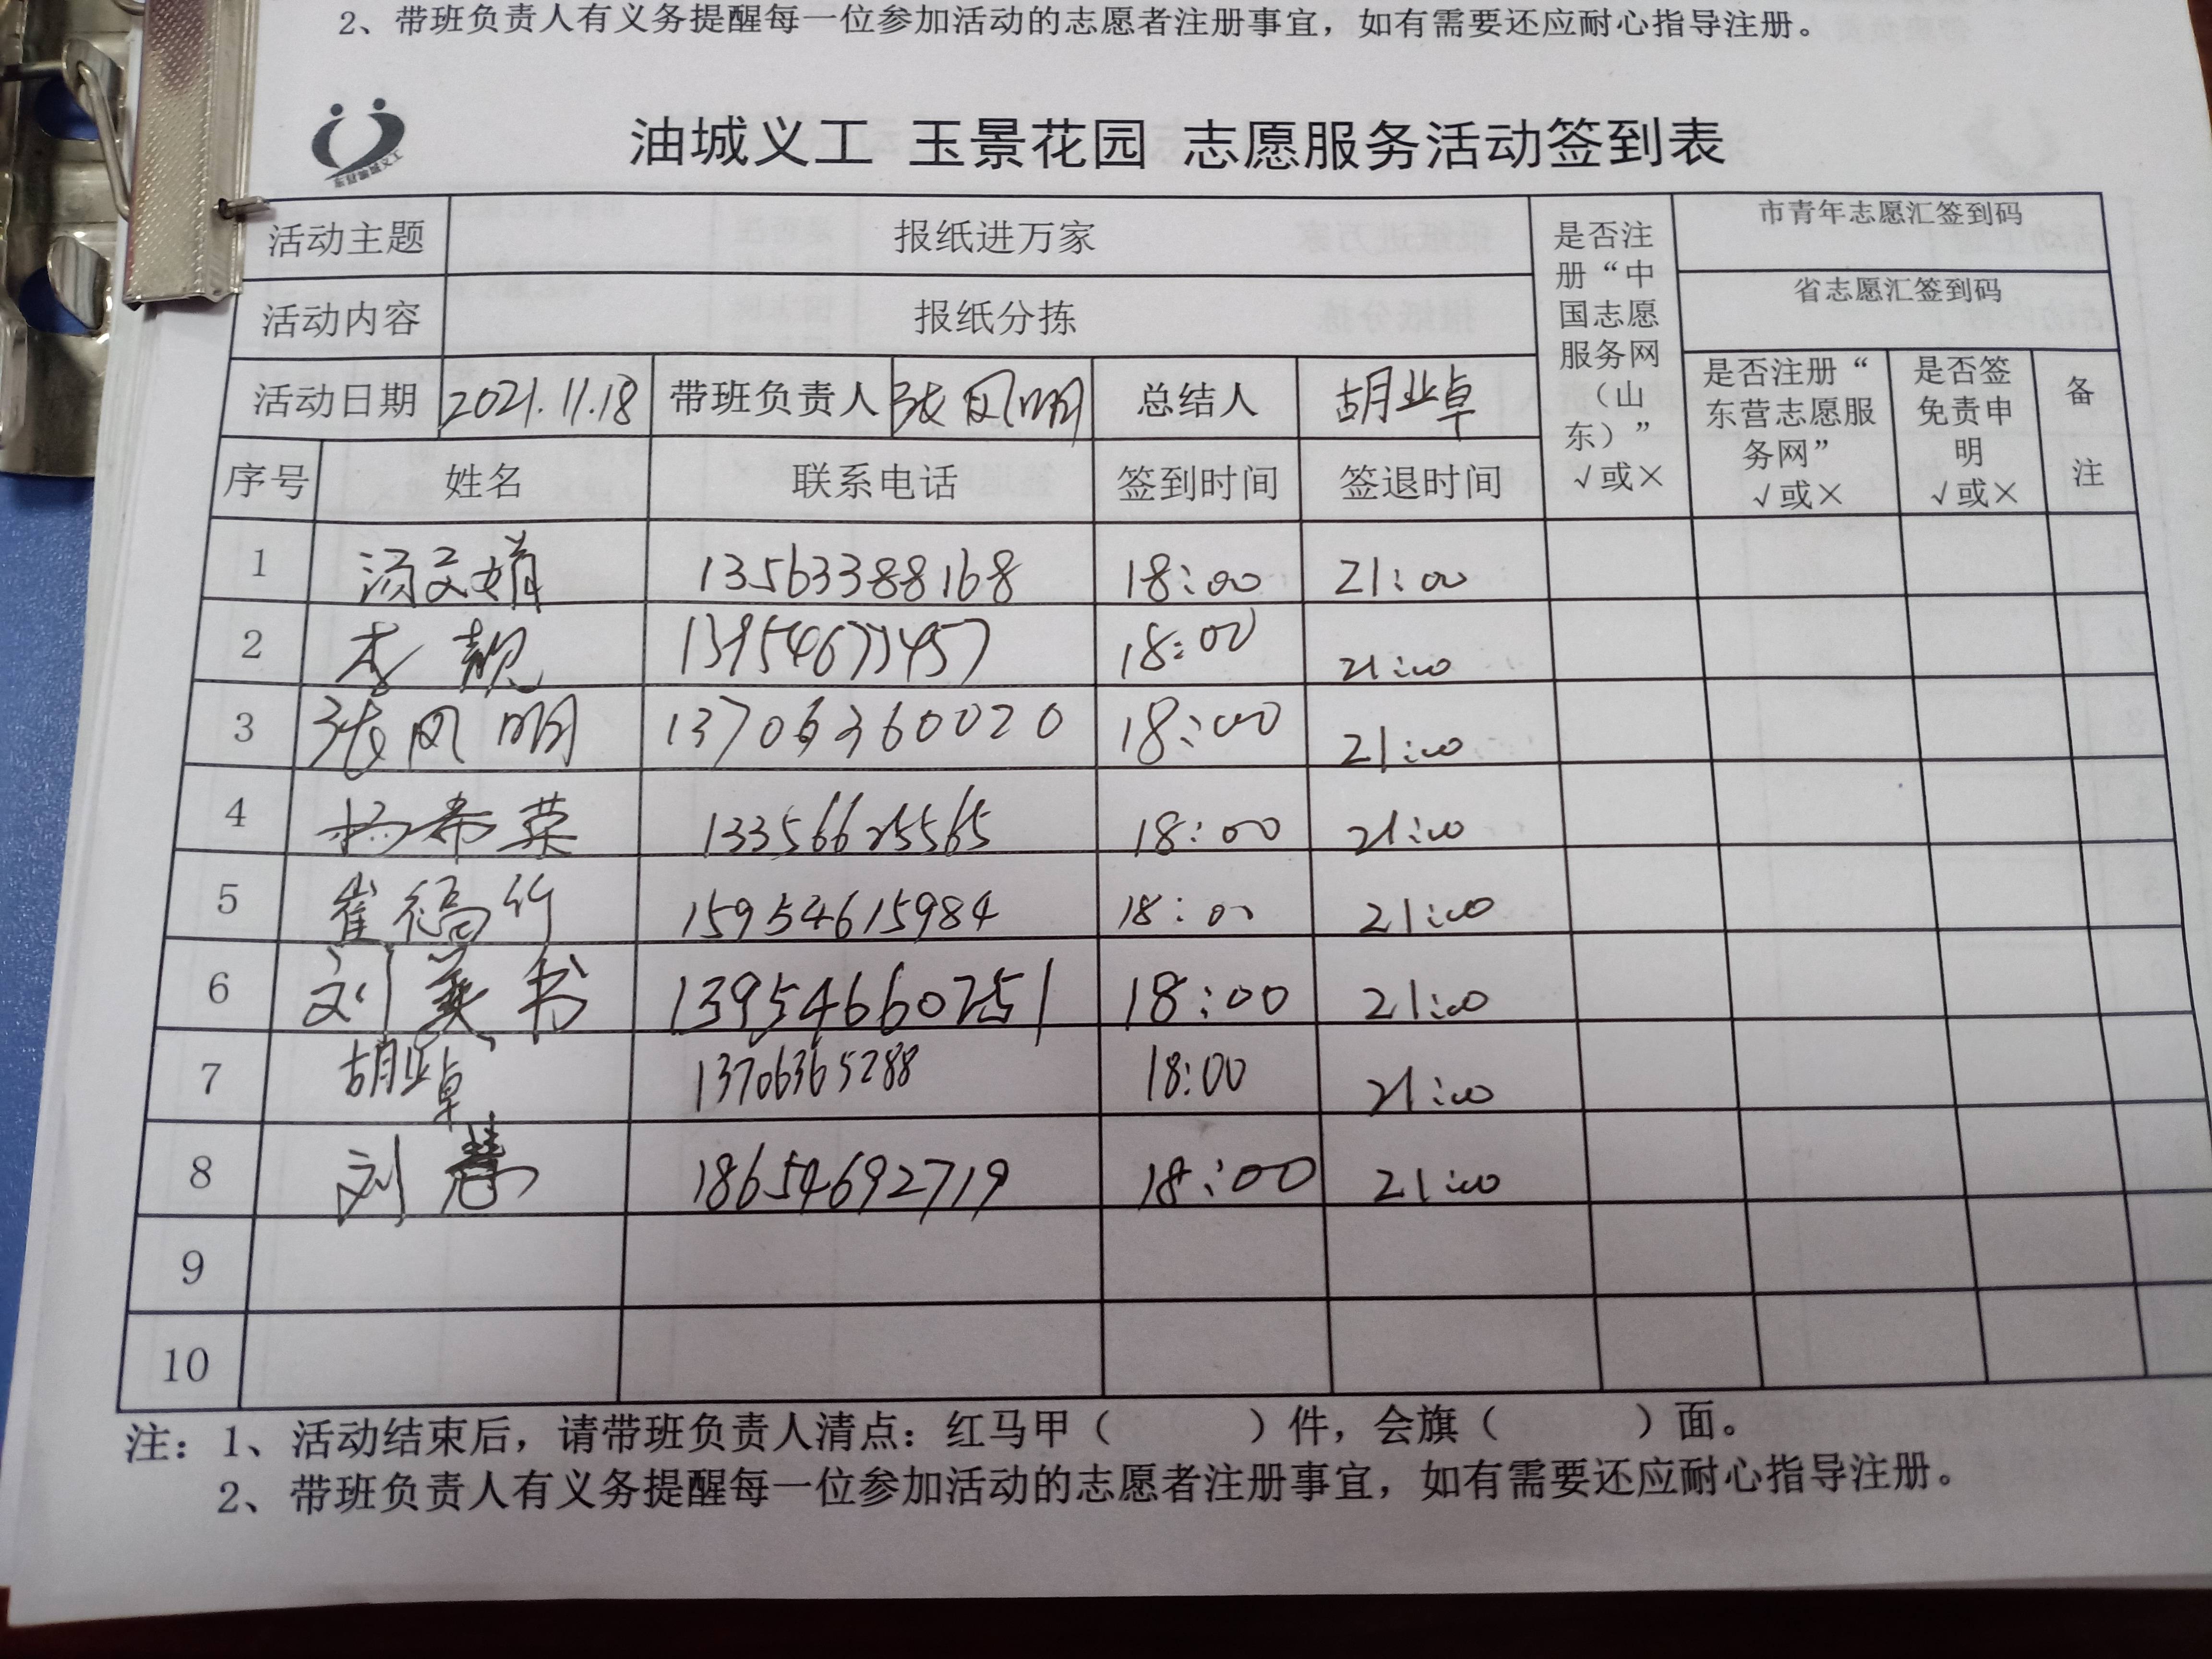 2、带班负责人有义务提醒每一位参加活动的志愿者注册事宜，如有需要还应耐心指导注册。
油城义工 玉景花园 志愿服务活动签到表
活动主题 报纸进万家
活动内容 报纸分拣
活动日期 2021.11.18 带班负责人 张凤明 总结人 胡业卓
序号 姓名 联系电话 签到时间 签退时间
是否注
册“中
国志愿
服务网
（山
东）”
√或×
市青年志愿汇签到码
省志愿汇签到码
是否注册“
东营志愿服
务网”
√或×
是否签
免责申
明
√或×
备
注
1 汤文娟 13563388168 18:00 21:00
2 李靓 18:00 21:00
3 张凤明 13706360020 18:00 21:00
4 杨希荣 13356625565 18:00 21:00
5 崔 15954615984 18:00 21:00
6 刘美书 13954660751 18:00 21:00
7 胡业卓 13706365288 18:00 21:00
8 刘慧 18654692719 18:00 21:00
9
10
注：1、活动结束后，请带班负责人清点：红马甲（ ）件，会旗（ ）面。
2、带班负责人有义务提醒每一位参加活动的志愿者注册事宜，如有需要还应耐心指导注册。